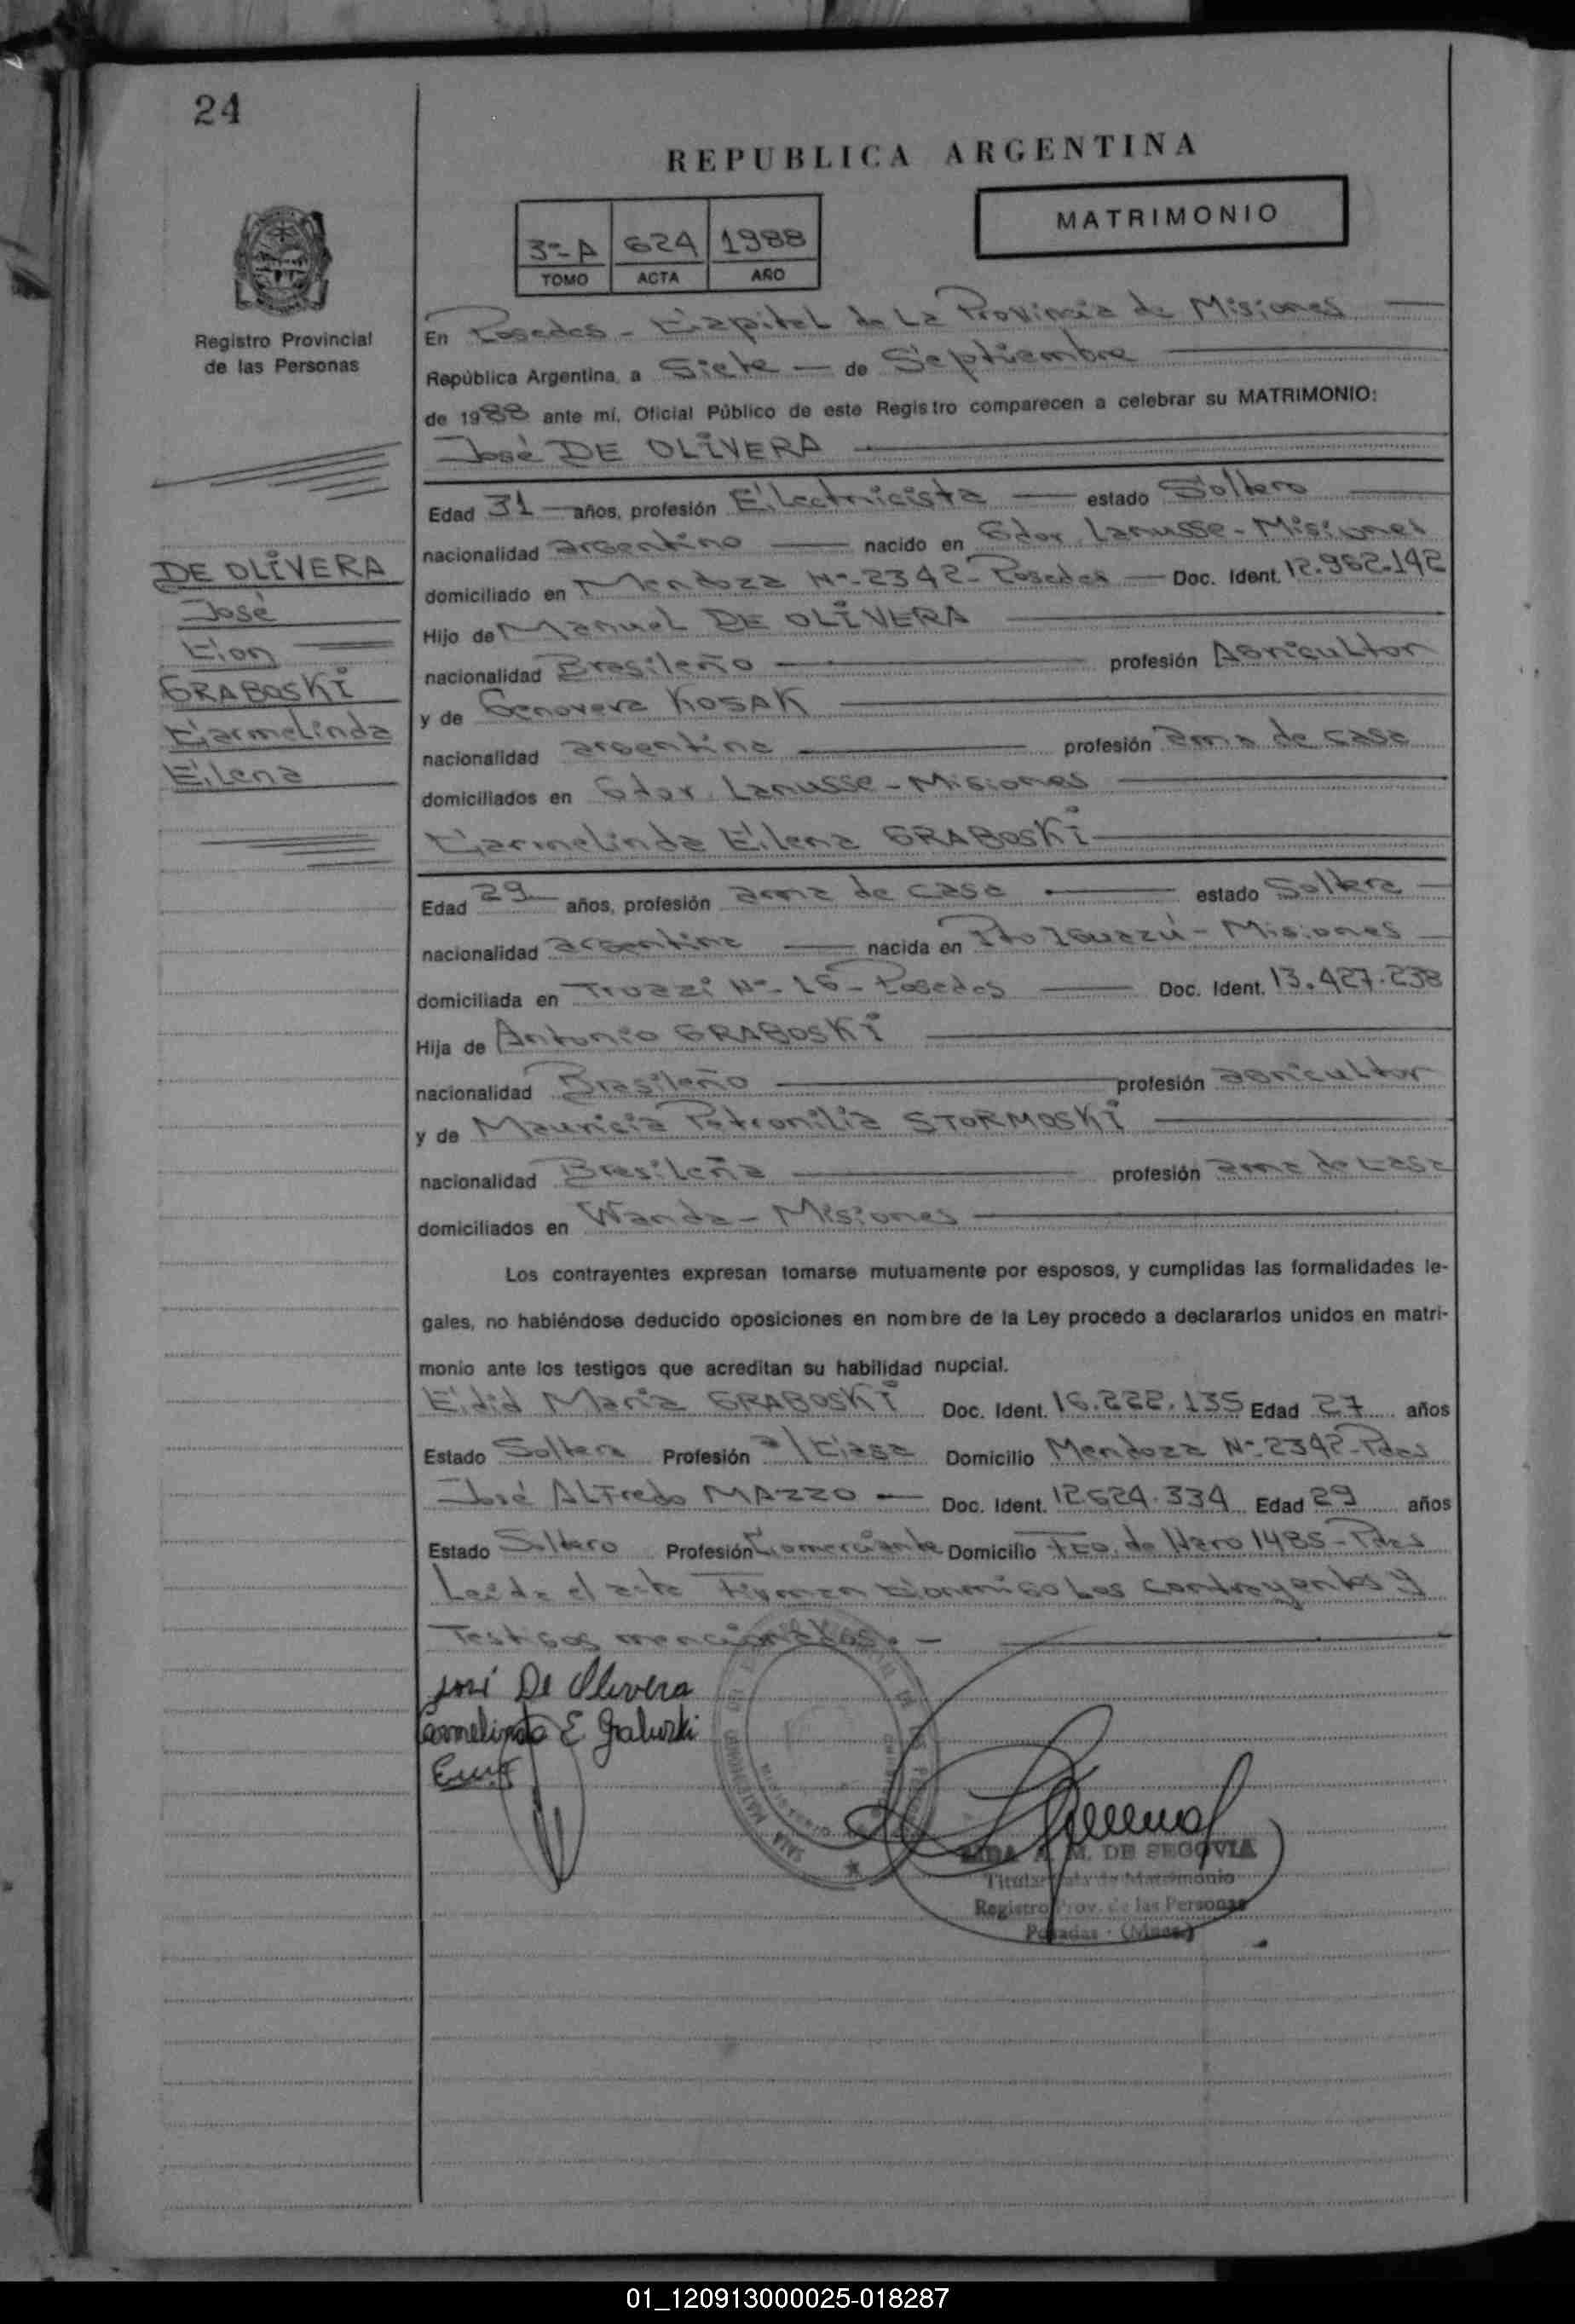 24
REPUBLICA ARGENTINA
MATRIMONIO
3º A 624 1988
TOMO ACTA AÑO
Registro Provincial
de las Personas
En Posadas - Capital de La Provincia de Misiones
República Argentina, a Siete de Septiembre
de 1988 ante mí, Oficial Público de este Registro comparecen a celebrar su MATRIMONIO:
José DE OLIVERA
Edad 31 años, profesión Electricista estado Soltero
nacionalidad argentino nacido en Gdor. Lanusse - Misiones
domiciliado en Mendoza Nº 2342 - Posadas Doc. Ident. 12.962.142
Hijo de Manuel DE OLIVERA
nacionalidad Brasileño profesión Agricultor
y de Genoveva KOSAK
nacionalidad argentina profesión ama de casa
domiciliados en Gdor. Lanusse - Misiones
Carmelinda Elena GRABOSKI
Edad 29 años, profesión ama de casa estado Soltera
nacionalidad argentina nacida en Pto Iguazú - Misiones
domiciliada en Trozzi Nº 16 - Posadas Doc. Ident. 13.427.238
Hija de Antonio GRABOSKI
nacionalidad Brasileño profesión agricultor
y de Mauricia Petronilia STORMOSKI
nacionalidad Brasileña profesión ama de casa
domiciliados en Wanda - Misiones
Los contrayentes expresan tomarse mutuamente por esposos, y cumplidas las formalidades le-
gales, no habiéndose deducido oposiciones en nombre de la Ley procedo a declararlos unidos en matri-
monio ante los testigos que acreditan su habilidad nupcial.
Edid Maria GRABOSKI Doc. Ident. 16.222.135 Edad 27 años
Estado Soltera Profesión a/ Casa Domicilio Mendoza Nº 2342 - Pdas
José Alfredo MAZZO Doc. Ident. 12.624.334 Edad 29 años
Estado Soltero Profesión Comerciante Domicilio Fco. de Haro 1485 - Pdas
Leída el acta firman conmigo Los contrayentes y
Testigos mencionados. -
DE OLIVERA
José
Con
GRABOSKI
Carmelinda
Elena
José De Olivera
Carmelinda E Graboski
A. M. DE SEGOVIA
Titular Sala de Matrimonio
Registro Prov. de las Personas
Posadas - (Mnes.)
01_120913000025-018287